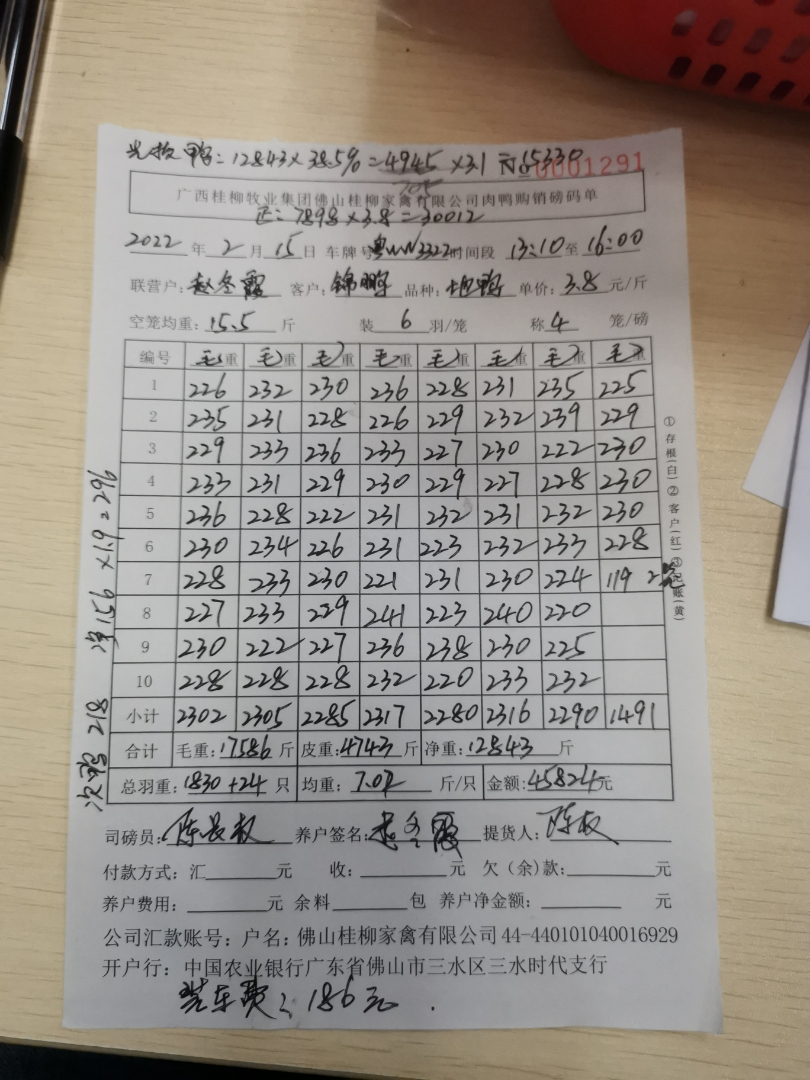 光板鸭:12843×38.5%=4945×3.1=15330
№0001291
广西桂柳牧业集团佛山桂柳家禽有限公司肉鸭购销磅码单
正:7898×3.8=30012
2022年2月15日 车牌号粤WN3322时间段13:10至16:00
联营户:赵冬霞 客户:锦鹏 品种: 单价:3.8元/斤
空笼均重:15.5斤 装6羽/笼 称4笼/磅
编号 毛重 毛重 毛重 毛重 毛重 毛重 毛重 毛重
1 226 232 230 236 228 231 235 225
2 235 231 228 226 229 232 239 229
3 229 233 236 233 227 230 222 230
4 233 231 229 230 229 227 228 230
5 236 228 222 231 232 231 232 230
6 230 234 226 231 223 232 233 228
7 228 233 230 221 231 230 224 119 2笼
8 227 233 229 241 223 240 220
9 230 222 227 236 238 230 225
10 228 228 228 232 220 233 232
小计 2302 2305 2285 2317 2280 2316 2290 1491
合计 毛重:17586斤 皮重:4743斤 净重:12843斤
总羽重:1830+24只 均重:7.02斤/只 金额:45824元
司磅员: 养户签名:赵冬霞 提货人:
付款方式:汇元 收:元 欠(余)款:元
养户费用:元 余料包 养户净金额:元
公司汇款账号:户名:佛山桂柳家禽有限公司44-440101040016929
开户行:中国农业银行广东省佛山市三水区三水时代支行
装车费:186元.
①存根(白)②客户(红)③记账(黄)
218 净156×1.9=296